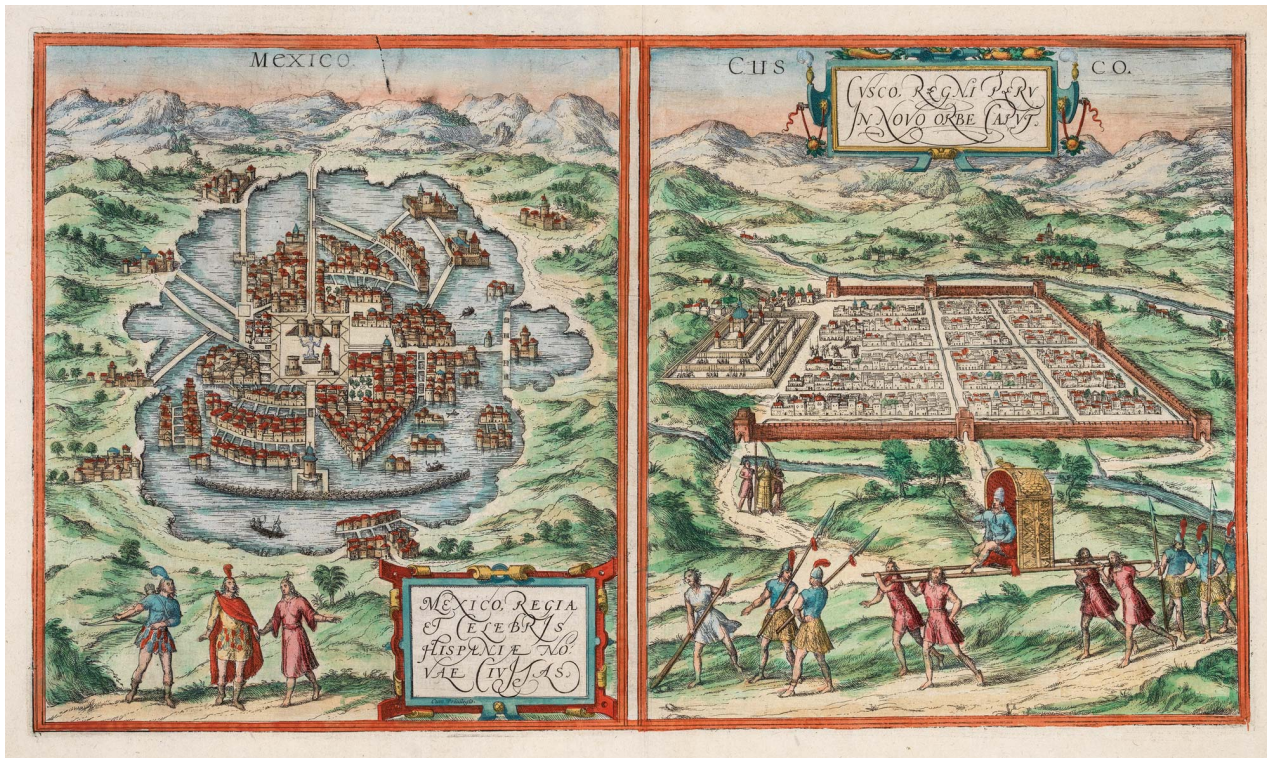 MEXICO.
MEXICO, REGIA
ET CELEBRIS
HISPANIÆ NO-
VAE CIVITAS.
CUS
CO.
CVSCO, REGNI PERV
IN NOVO ORBE CAPVT.